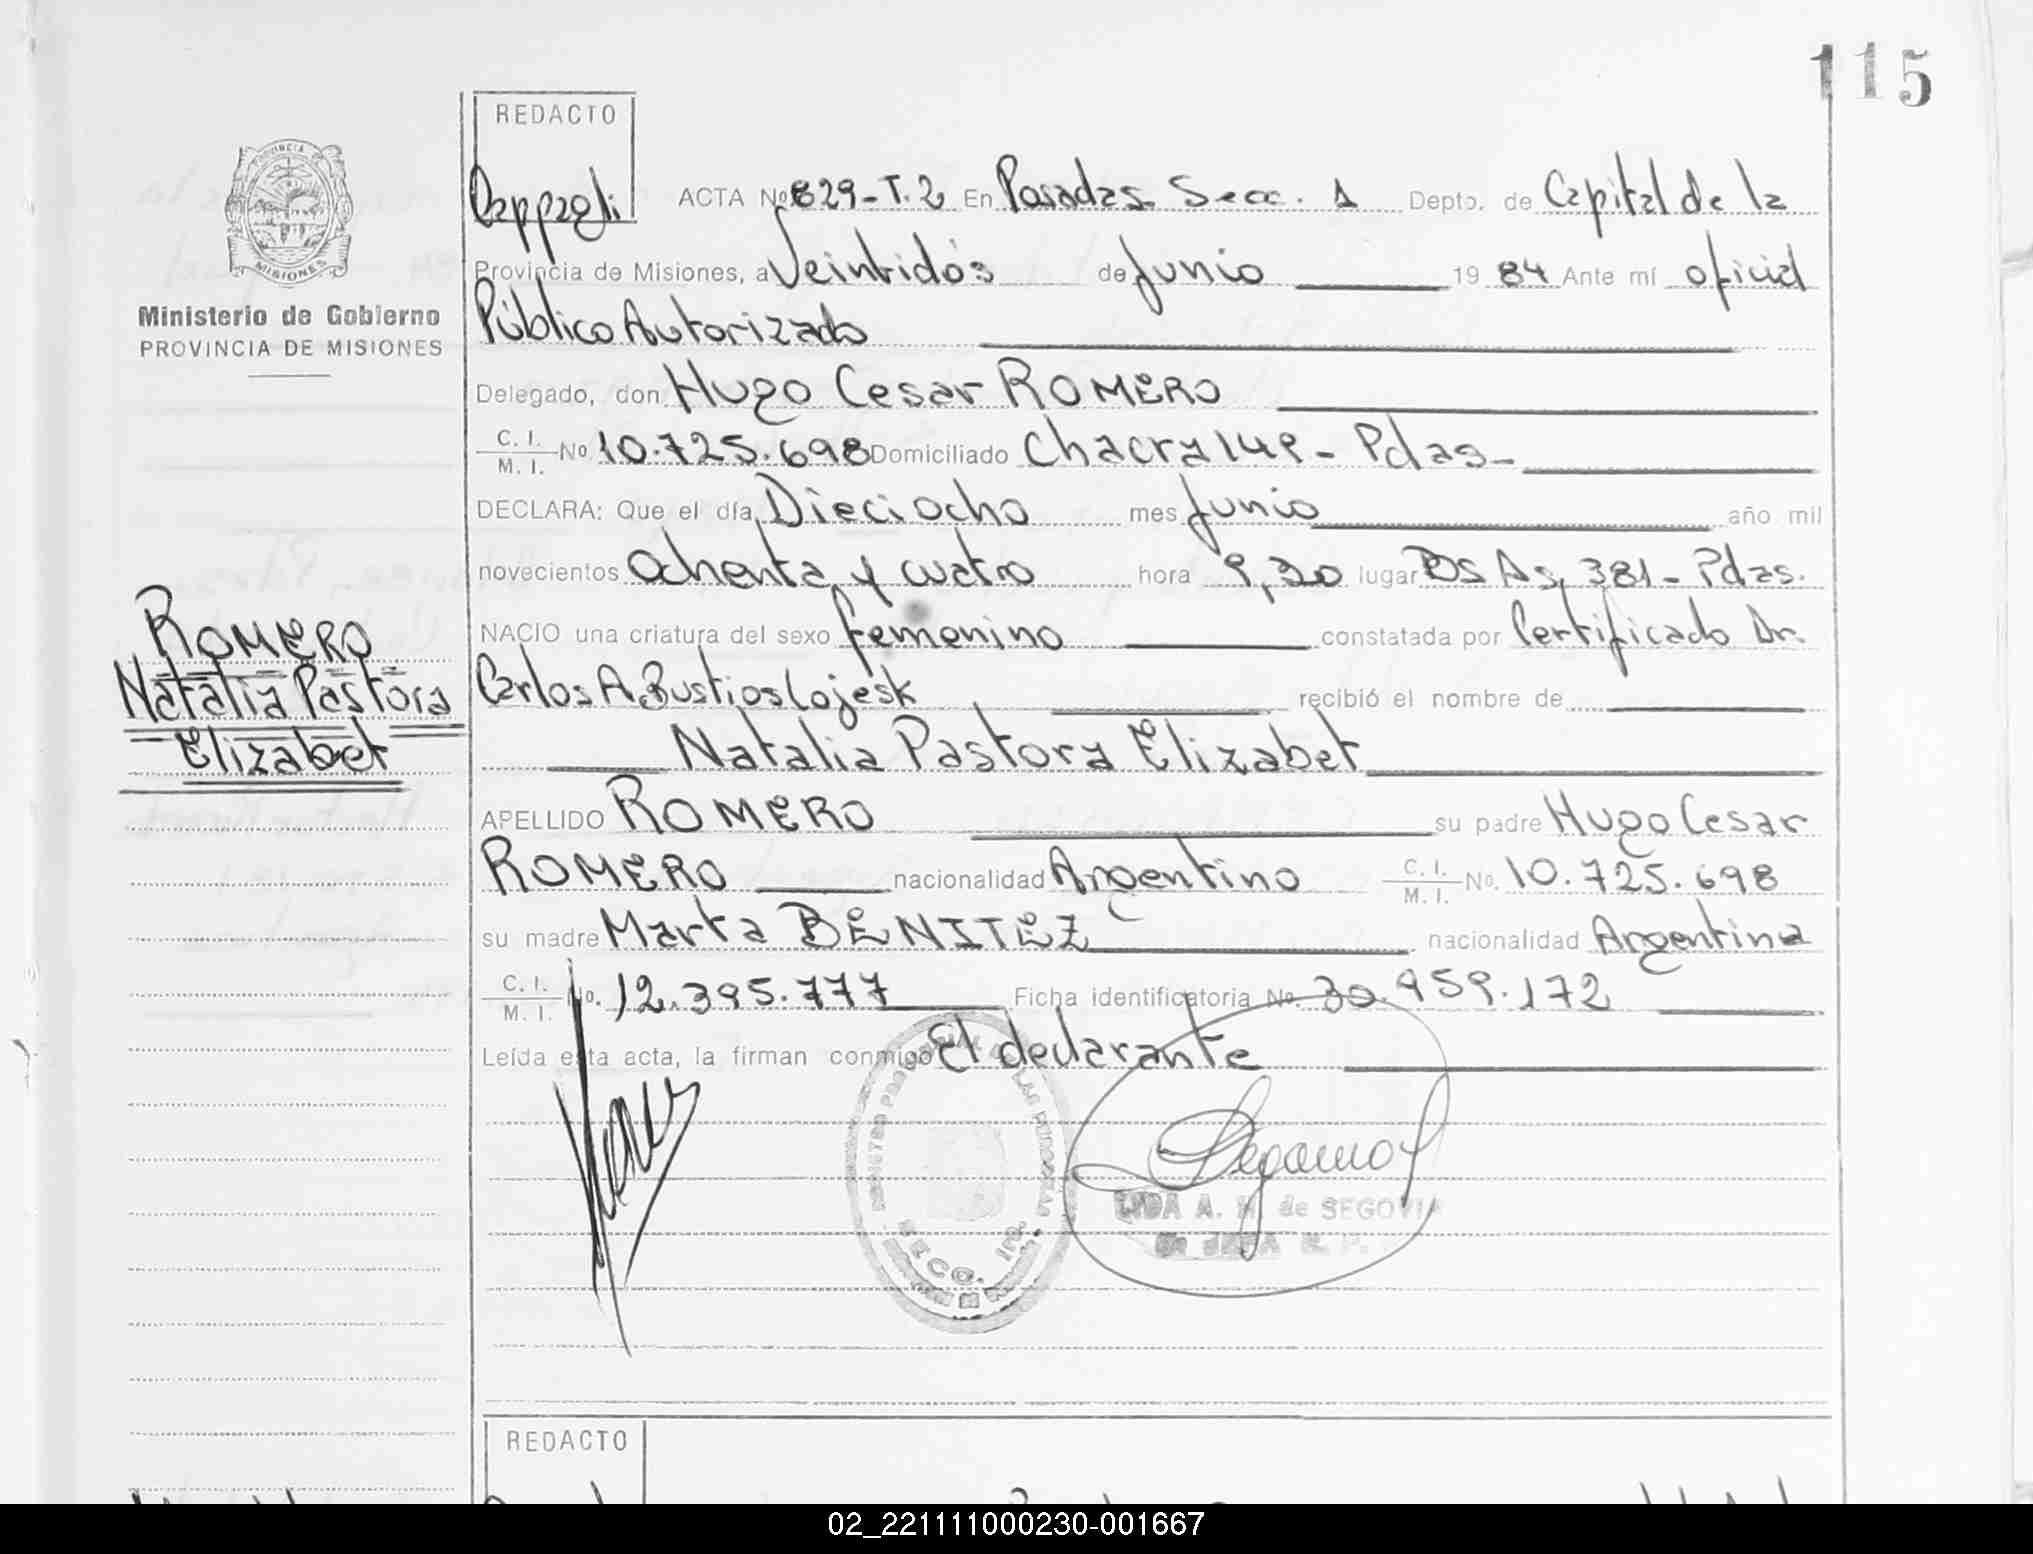 115
REDACTO
Cappagli
ACTA Nº 829-T.2 En Posadas Secc. 1 Depto. de Capital de la
PROVINCIA
MISIONES
Ministerio de Gobierno
PROVINCIA DE MISIONES
Provincia de Misiones, a Veintidós de Junio 19 84 Ante mí oficial
Público Autorizado
Delegado, don Hugo Cesar ROMERO
C. I. M. I. Nº 10.725.698 Domiciliado Chacra 149 - Pdas -
DECLARA: Que el día Dieciocho mes Junio año mil
novecientos ochenta y cuatro hora 9,30 lugar Bs As, 381 - Pdas.
NACIO una criatura del sexo femenino constatada por Certificado Dr.
ROMERO
Natalia Pastora
Elizabet
Carlos A. Bustios Lojesk recibió el nombre de
Natalia Pastora Elizabet
APELLIDO ROMERO su padre Hugo Cesar
ROMERO nacionalidad Argentino C. I. M. I. Nº. 10.725.698
su madre Marta BENITEZ nacionalidad Argentina
C. I. M. I. No. 12.395.777 Ficha identificatoria Nº. 30.959.172
Leída esta acta, la firman conmigo El declarante
REGISTRO PROVINCIAL DE LAS PERSONAS
SECC. 1ra.
A. M. de SEGOVIA
REDACTO
02_221111000230-001667